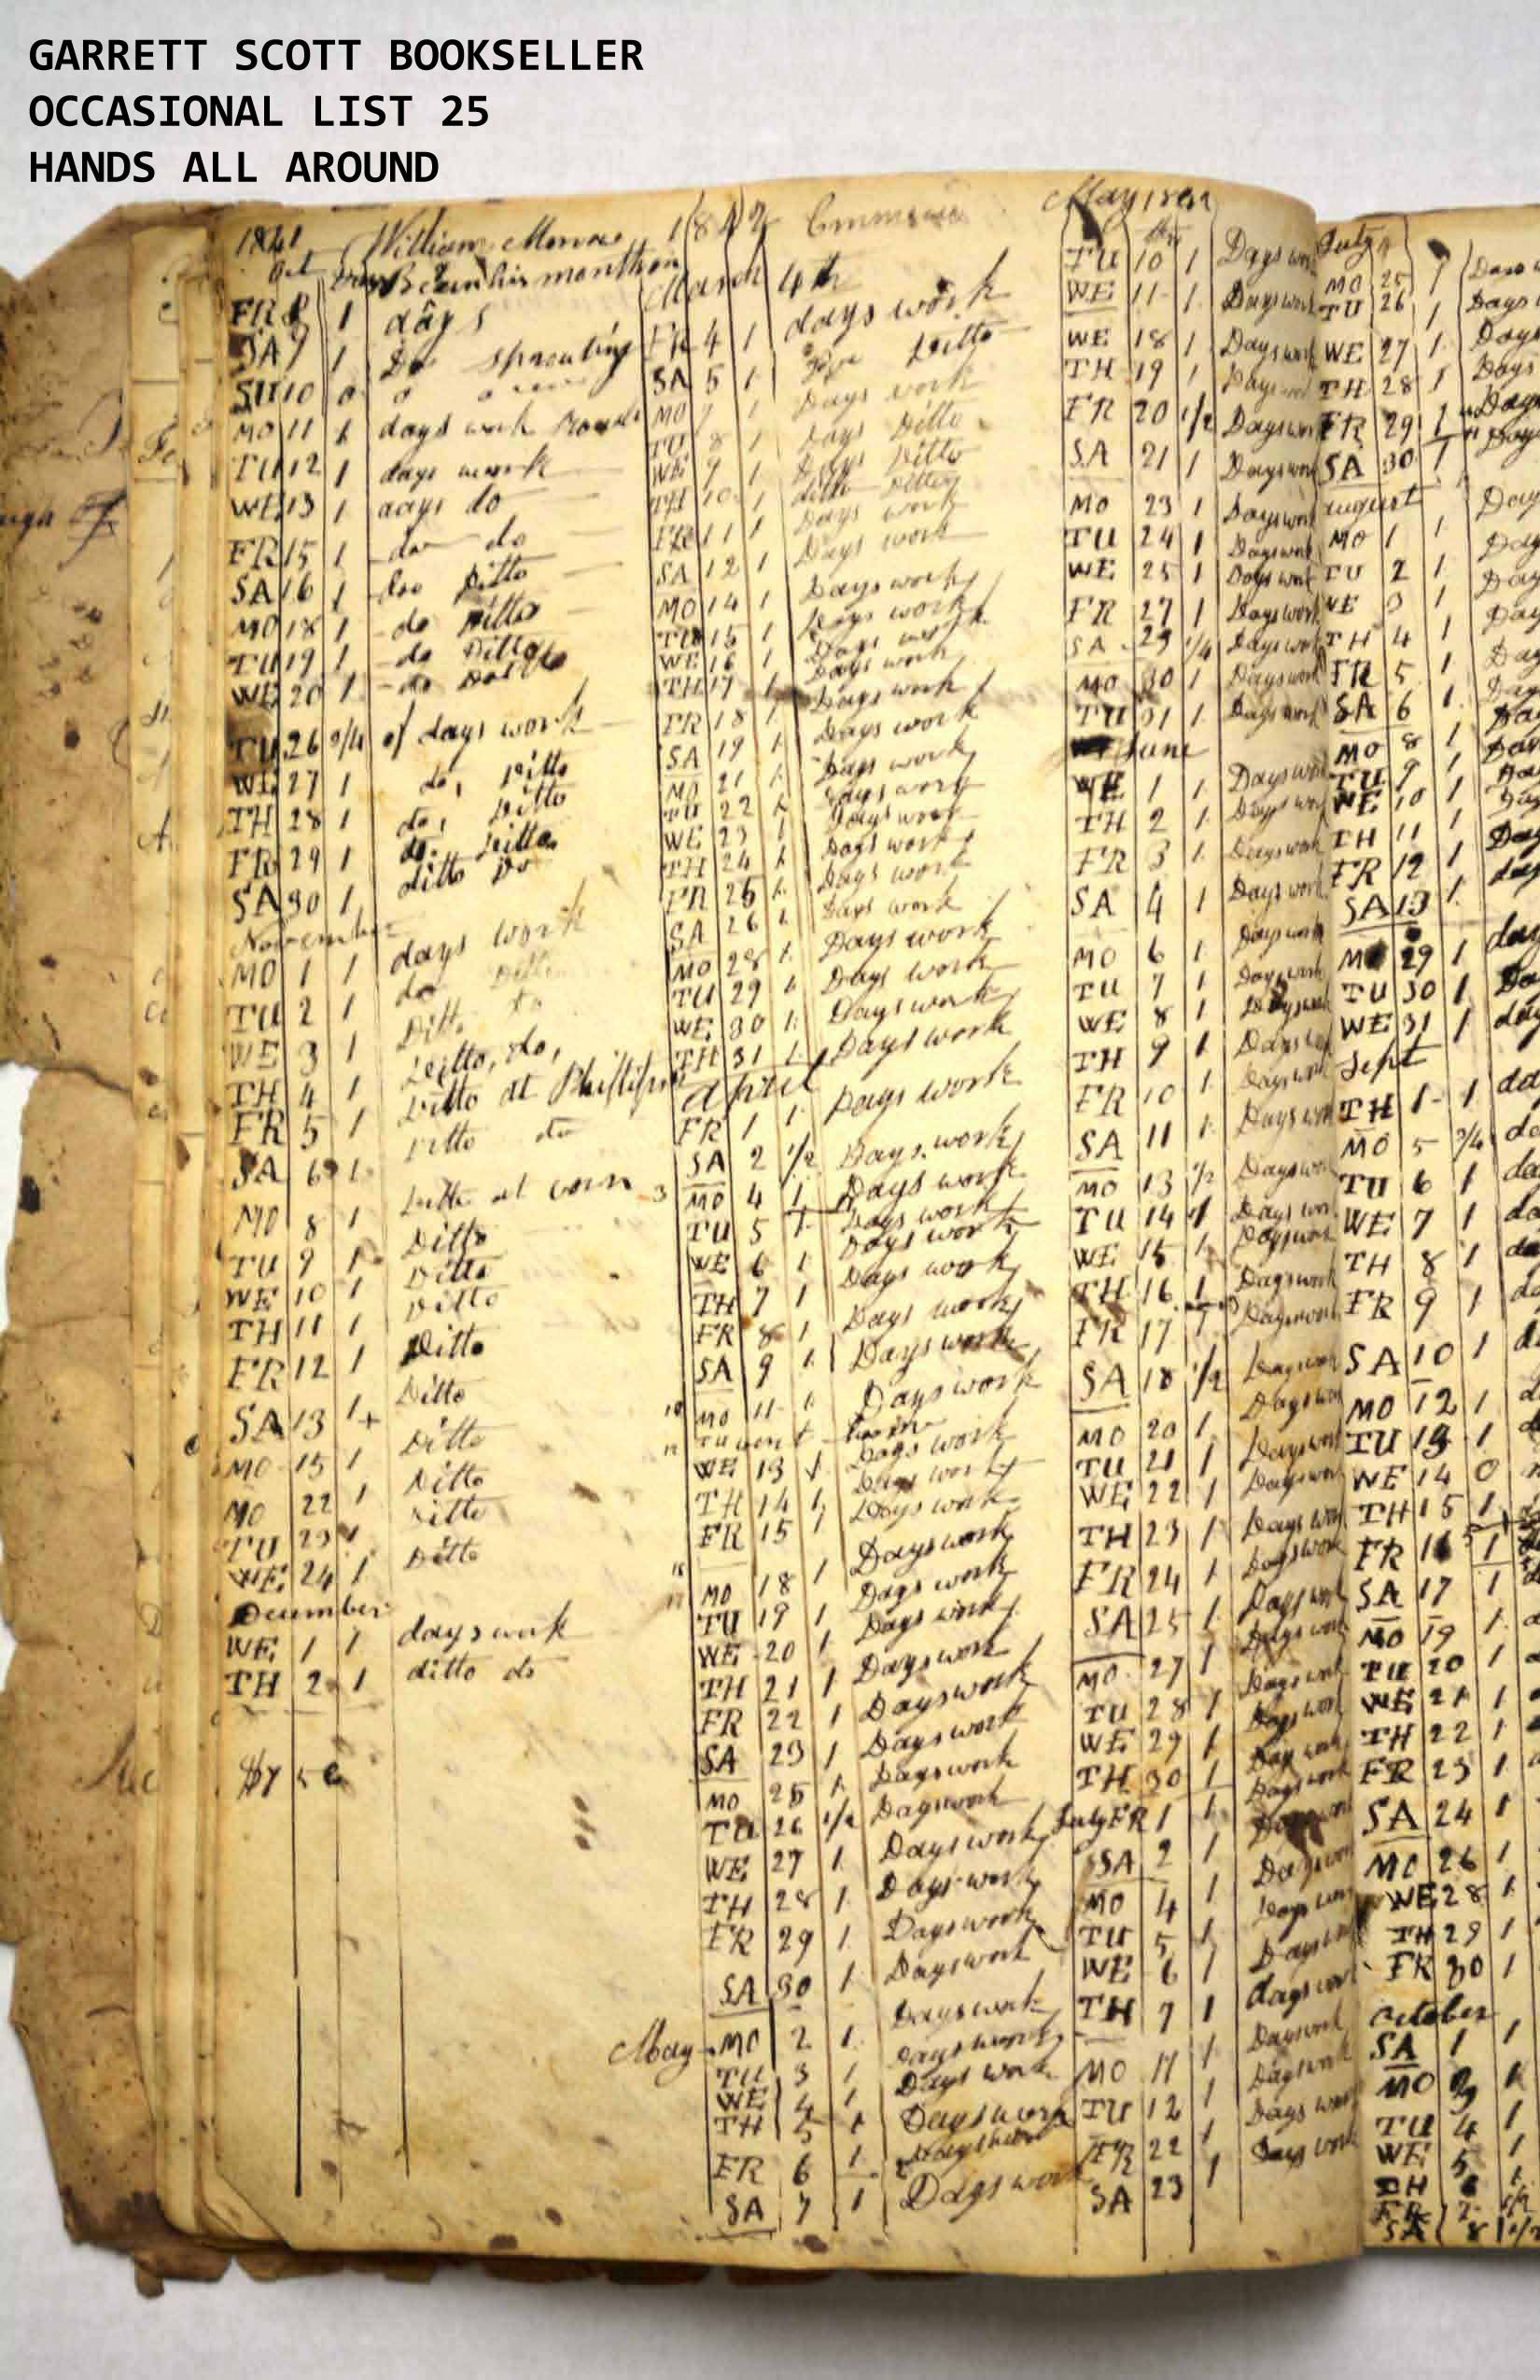 GARRETT SCOTT BOOKSELLER
OCCASIONAL LIST 25
HANDS ALL AROUND
1841 William
Oct Began his month
FR 8 1 days
SA 9 1 Do sprouting
SU 10 0 0
MO 11 1 days work
TU 12 1 days work
WE 13 1 days do
FR 15 1 do do
SA 16 1 doo Ditto
MO 18 1 do Ditto
TU 19 1 do Ditto
WE 20 1 do
TU 26 3/4 of days work
WE 27 1 do, Ditto
TH 28 1 do, Ditto
FR 29 1 do. Ditto
SA 30 1 ditto Do
November
MO 1 1 days work
TU 2 1 do Ditto
WE 3 1 Ditto
TH 4 1 Ditto, do,
FR 5 1 Ditto at
SA 6 1 Ditto do
MO 8 1 Ditto at corn
TU 9 1 Ditto
WE 10 1 Ditto
TH 11 1 Ditto
FR 12 1 Ditto
SA 13 1+ Ditto
MO 15 1 Ditto
MO 22 1 Ditto
TU 23 1 Ditto
WE 24 1 Ditto
December
WE 1 1 days work
TH 2 1 ditto do
1842
March 4th
FR 4 1 days work
SA 5 1 Ditto
MO 7 1 Days work
TU 8 1 Days Ditto
WE 9 1 Days Ditto
TH 10 1 ditto
FR 11 1 Days work
SA 12 1 Days work
MO 14 1 Days work
TU 15 1 Days work
WE 16 1 Days work
TH 17 1 Days work
FR 18 1 Days work
SA 19 1 Days work
MO 21 1 Days work
TU 22 1 Days work
WE 23 1 Days work
TH 24 1 Days work
FR 25 1 Days work
SA 26 1 Days work
MO 28 1 Days work
TU 29 1 Days work
WE 30 1 Days work
TH 31 1 Days work
April
FR 1 1 Days work
SA 2 1/2 Days work
MO 4 1 Days work
TU 5 1 Days work
WE 6 1 Days work
TH 7 1 Days work
FR 8 1 Days work
SA 9 1 Days work
MO 11 1 Days work
TU went
WE 13 1 Days work
TH 14 1 Days work
FR 15 1 Days work
MO 18 1 Days work
TU 19 1 Days work
WE 20 1 Days work
TH 21 1 Days work
FR 22 1 Days work
SA 23 1 Days work
MO 25 1 Days work
TU 26 1/2 Days work
WE 27 1 Days work
TH 28 1 Days work
FR 29 1 Days work
SA 30 1 Days work
May MO 2 1 Days work
TU 3 1 Days work
WE 4 1 Days work
TH 5 1 Days work
FR 6 1 Days work
SA 7 1 Days work
May 1842
TU 10 1 Days work
WE 11 1 Days work
WE 18 1 Days work
TH 19 1 Days work
FR 20 1/2 Days work
SA 21 1 Days work
MO 23 1 Days work
TU 24 1 Days work
WE 25 1 Days work
FR 27 1 Days work
SA 1/4 Days work
MO 30 1 Days work
TU 31 1 Days work
June
WE 1 1 Days work
TH 2 1 Days work
FR 3 1 Days work
SA 4 1 Days work
MO 6 1 Days work
TU 7 1 Days work
WE 8 1 Days work
TH 9 1 Days work
FR 10 1 Days work
SA 11 1 Days work
MO 13 1/2 Days work
TU 14 1 Days work
WE 15 1 Days work
TH 16 1 Days work
FR 17 1 Days work
SA 18 1/2 Days work
MO 20 1 Days work
TU 21 1 Days work
WE 22 1 Days work
TH 23 1 Days work
FR 24 1 Days work
SA 25 1 Days work
MO 27 1 Days work
TU 28 1 Days work
WE 29 1 Days work
TH 30 1 Days work
July FR 1 1
SA 2 1 Days work
MO 4 1 Days work
TU 5 1 Days
WE 6 1 days work
TH 7 1 Days work
MO 11 1 Days work
TU 12 1 Days work
FR 22 1 Days work
SA 23 1
July
MO 25 1 Days
TU 26 1 Days
WE 27 1 Days
TH 28 1 Days
FR 29 1 Days
SA 30 1 Days
august
MO 1 1 Day
TU 2 1 Day
WE 3 1 Day
TH 4 1 Day
FR 5 1 Day
SA 6 1 Day
MO 8 1 Day
TU 9 1 Day
WE 10 1 Day
TH 11 1 Day
FR 12 1 day
SA 13 1
MO 29 1 day
TU 30 1 Da
WE 31 1 day
Sept
TH 1 1 da
MO 5 3/4 da
TU 6 1 da
WE 7 1 da
TH 8 1 da
FR 9 1 da
SA 10 1 d
MO 12 1 d
TU 13 1 d
WE 14 0
TH 15 1
FR 16 1
SA 17 1
MO 19 1
TU 20 1
WE 21 1
TH 22 1
FR 23 1
SA 24 1
MO 26 1
WE 28 1
TH 29 1
FR 30 1
october
SA 1 1
MO 3 1
TU 4 1
WE 5 1
TH 6 1